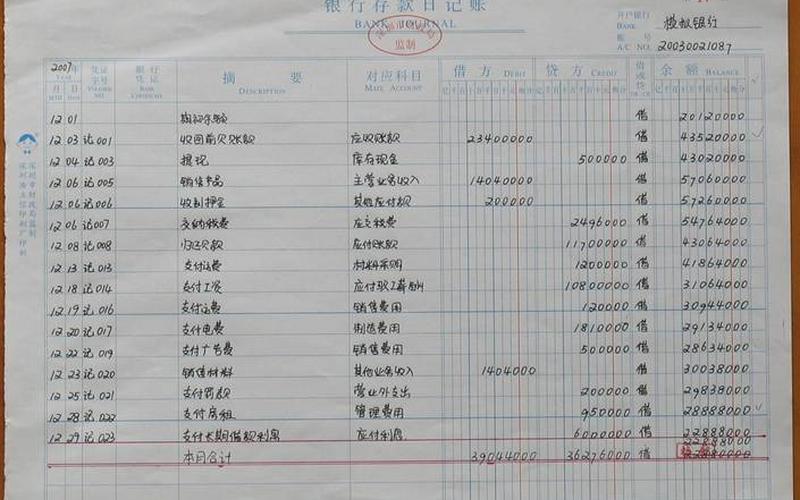 银行存款日记账
BANK JOURNAL
监制
开户银行 BANK 模拟银行
账号 A/C NO. 20030021087
2007年 凭证字号 银行凭证 摘要 DESCRIPTION 对应科目 借方 DEBIT 贷方 CREDIT 借或贷 余额 BALANCE
12 01 期初余额 借 20120000
12 03 记001 收回前欠账款 应收账款 23400000 借 43520000
12 04 记003 提现 库存现金 500000 借 43020000
12 06 记005 销售产品 主营业务收入 14040000 借 57060000
12 06 记006 收到押金 其他应付款 200000 借 57260000
12 06 记007 交纳税费 应交税费 2496000 借 54764000
12 08 记008 归还欠款 应付账款 11700000 借 43064000
12 13 记013 支付运费 材料采购 1200000 借 41864000
12 18 记014 支付工资 应付职工薪酬 10800000 借 31064000
12 19 记016 支付运费 销售费用 120000 借 30944000
12 20 记017 支付电费 制造费用 1810000 借 29134000
12 22 记019 支付广告费 销售费用 500000 借 28634000
12 23 记020 销售材料 其他业务收入 1404000 借 30038000
12 25 记021 支付罚款 营业外支出 200000 借 29838000
12 28 记022 支付房租 管理费用 950000 借 28888000
12 29 记023 支付长期借款利息 应付利息 6000000 借 22888000
22888000
本月合计 39044000 36276000 借